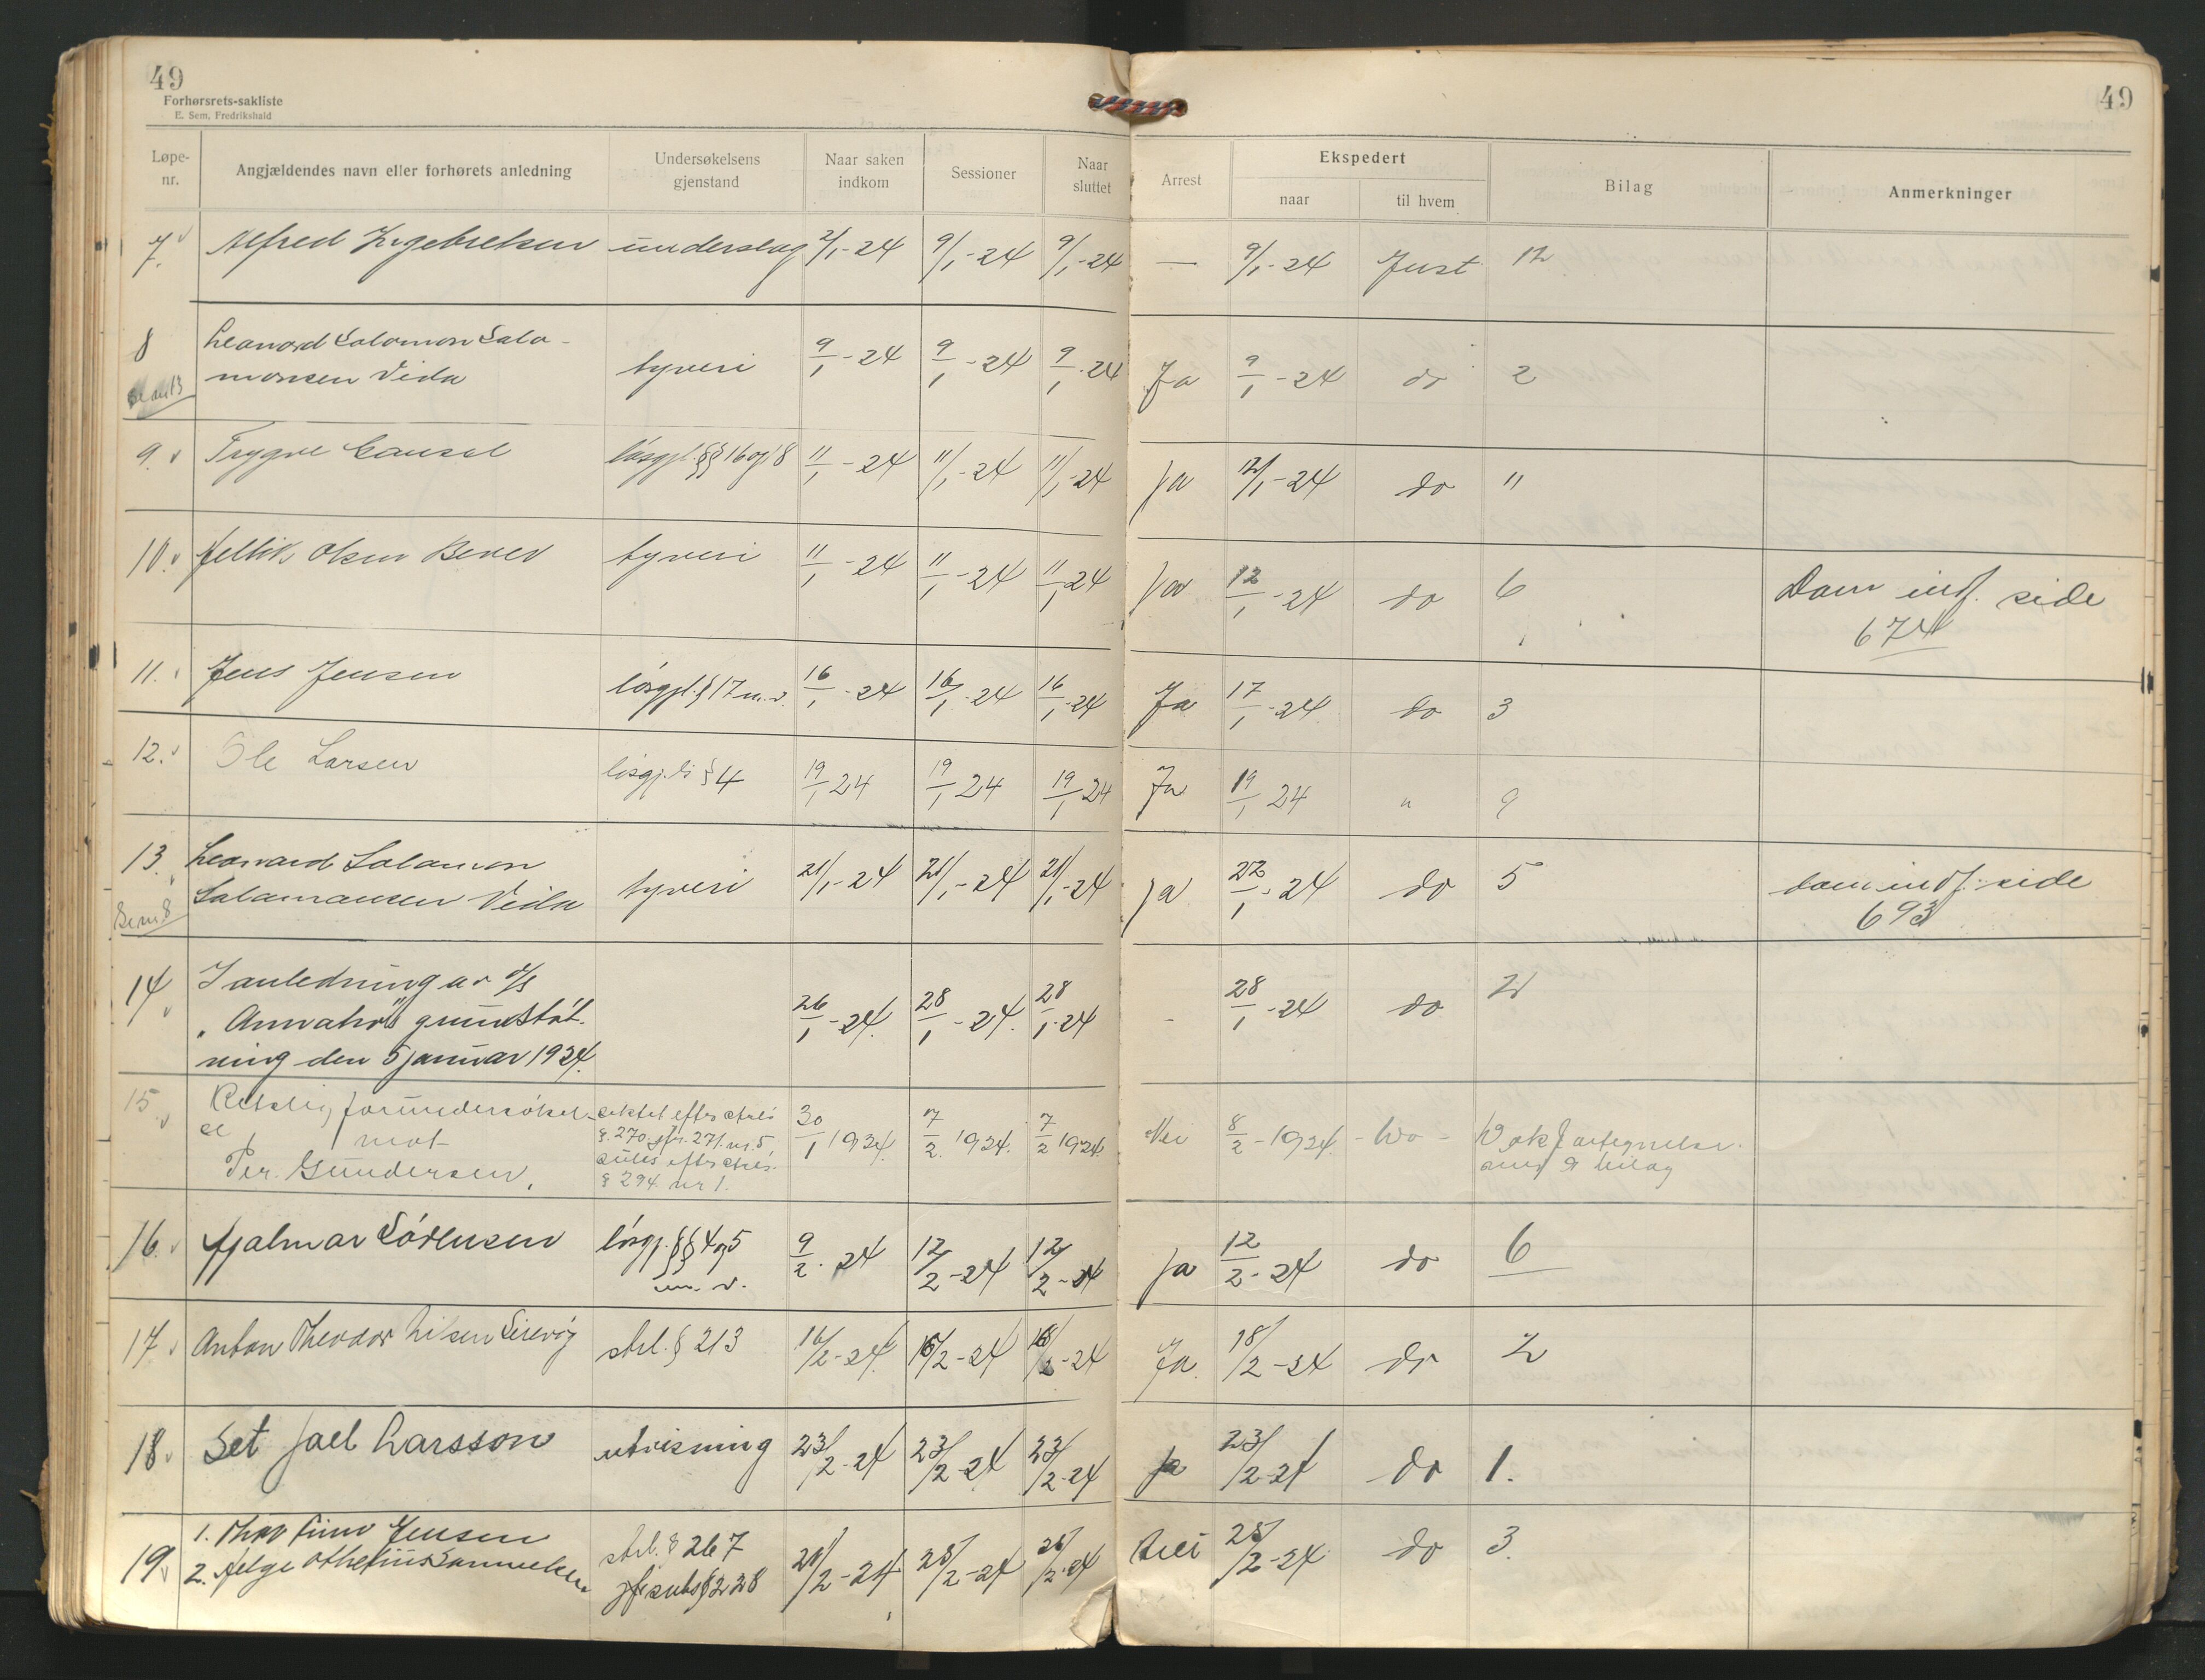 49
49
Forhørsrets-sakliste
E. Sem, Fredrikshald
Løpe-nr. Angjældendes navn eller forhørets anledning Undersøkelsens gjenstand Naar saken indkom Sessioner Naar sluttet Arrest Ekspedert naar til hvem Bilag Anmerkninger
7. Alfred Ingebretsen underslag 2/1-24 9/1-24 9/1-24 — 9/1-24 Just 12
8 Leonard Salomon Salo-
monsen Vida tyveri 9/1-24 9/1-24 9/1-24 Ja 9/1-24 do 2
9. Trygve løsgjl. §§ 16 og 18 11/1-24 11/1-24 11/1-24 Ja 12/1-24 do "
10. Olsen tyveri 11/1-24 11/1-24 11/1-24 Ja 12/1-24 do 6 Dom indf. side
674
11. Jens Jensen løsgjl. § 17 m.v. 16/1-24 16/1-24 16/1-24 Ja 17/1-24 do 3
12. Ole Larsen løsgj. § 4 19/1 24 19/1 24 19/1 24 Ja 19/1 24 " 9
13. Leonard Salomon
Salamonsen Vida tyveri 21/1-24 21/1-24 21/1-24 Ja 22/1-24 do 5 dom indf. side
693
14 I anledning av d/s
"Annaho" grunnstøt-
ning den 5 januar 1924. 26/1-24. 28/1-24. 28/1-24 - 28/1-24 do 2
15. Retslig forundersøkel-
se mot
Per. Gundersen, siktet efter strl.s
§. 270 jfr. 271. nr. 5
subs efter strl.s.
§ 294. nr 1. 30/1 1924. 7/2. 1924. 7/2 1924. Nei 8/2-1924. - do - 
bilag
16. Hjalmar Sørensen løsgj. §§ 4 og 5
m. v. 9/2-24 12/2-24 12/2-24 ja 12/2-24 do 6
17 Anton Theodor strl. § 213 16/2-24. 16/2-24 18/2-24 Ja. 18/2-24 do 2
18. Set Joel Larsson utvisning 23/2-24 23/2-24 23/2-24 ja 23/2-24 do 1.
19. 1. Thor Finn Jensen
2. Helge strl. § 267
jfr subs § 228 25/2-24 Nei 25/2-24 do 3.